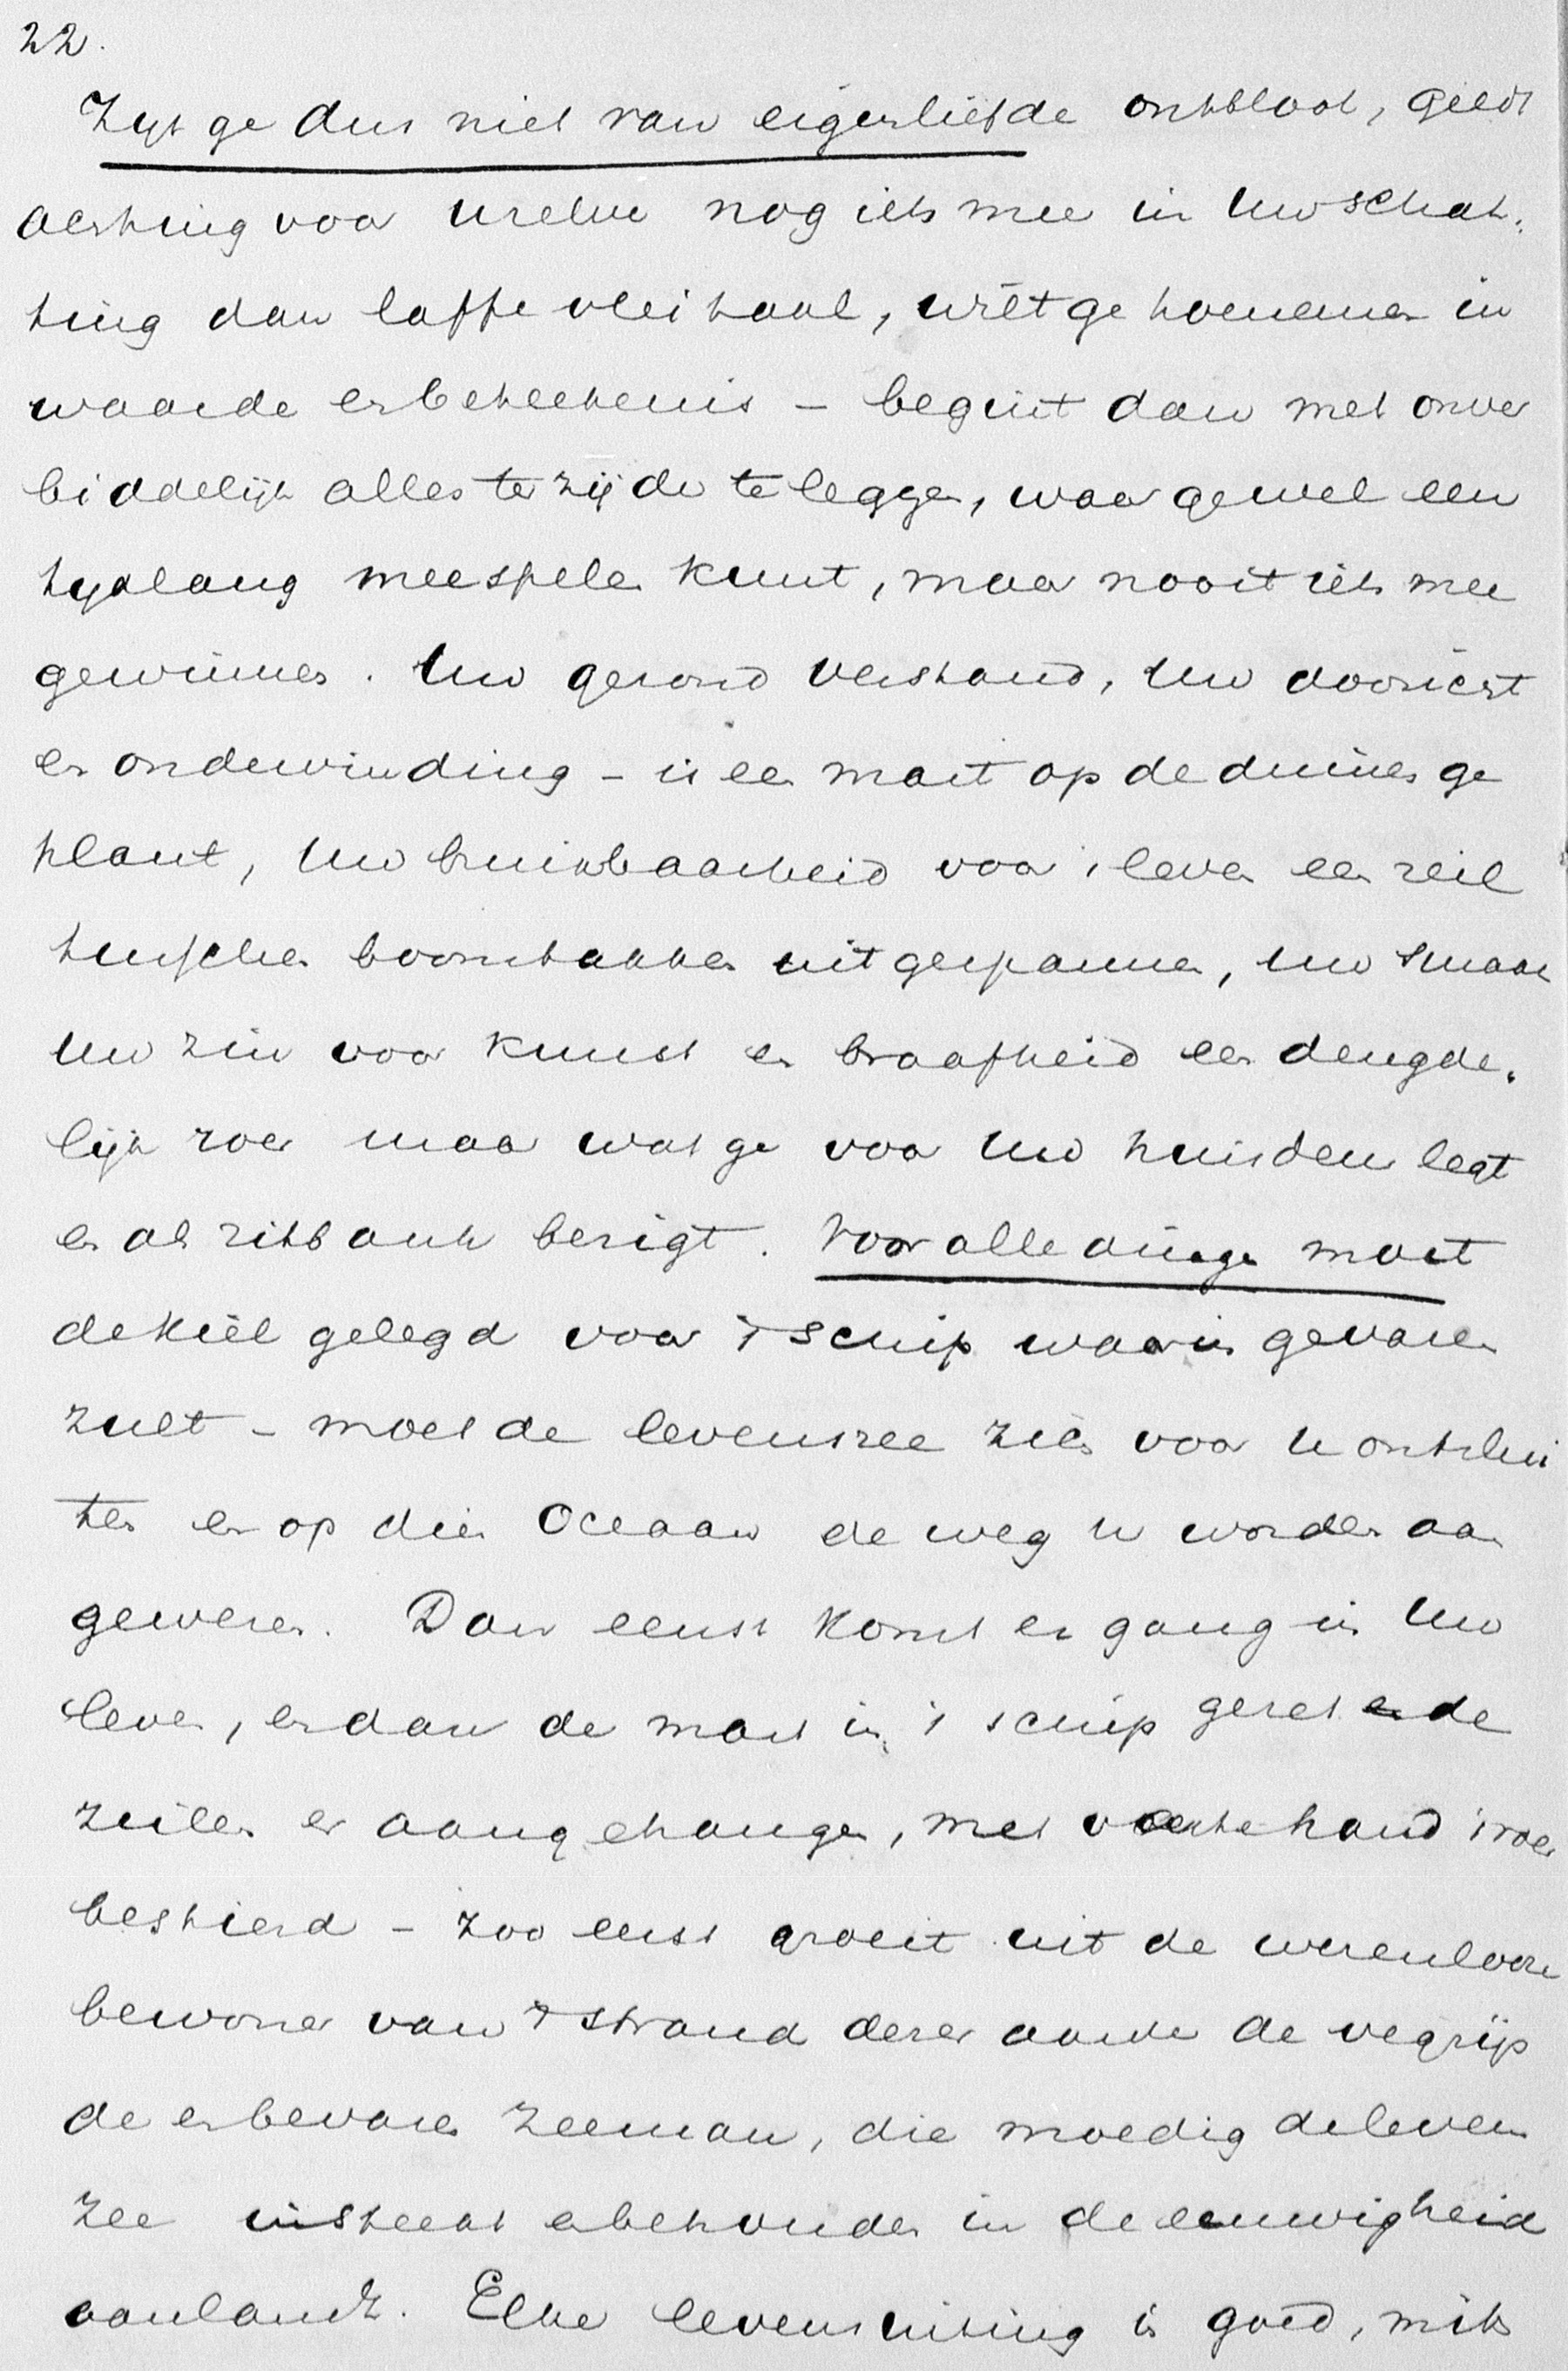 22.
Zijt ge dus niet van eigenliefde ontbloot, geldt
achting voor uzelve nog iets meer in Uw schat-
ting dan laffe vleitaal, wilt ge toenemen in
waarde en beteekenis – begint dan met onver
biddelijk alles ter zijde te leggen, waar ge wel een
tijdlang meespelen kunt, maar nooit iets mee
gewinnen. Uw gezond verstand, Uw doorzicht
en ondervinding – is een mast op de duinen ge
plant, Uw bruikbaarheid voor 't leven een zeil
tusschen boomtakken uitgespannen, Uw smaak
Uw zin voor kunst en braafheid een deugde-
lijk roer maar wat ge voor Uw huisdeur legt
en als zitbank bezigt. Voor alle dingen moet
de kiel gelegd voor 't schip waarin ge varen
zult – moet de levenszee zich voor U ontslui
ten en op dien Oceaan de weg U worden aan
gewezen. Dan eerst komt er gang in Uw
leven, en dan de mast in 't schip gezet de
zeilen er aangehangen, met vaste hand 't roer
bestierd – zoo eerst groeit uit de wezenlooze
bewoner van 't strand dezer aarde de vegrijs
de en bevaren zeeman, die moedig de levens
zee insteekt en behouden in de eeuwigheid
aanlandt. Elke levensuiting is goed, mits